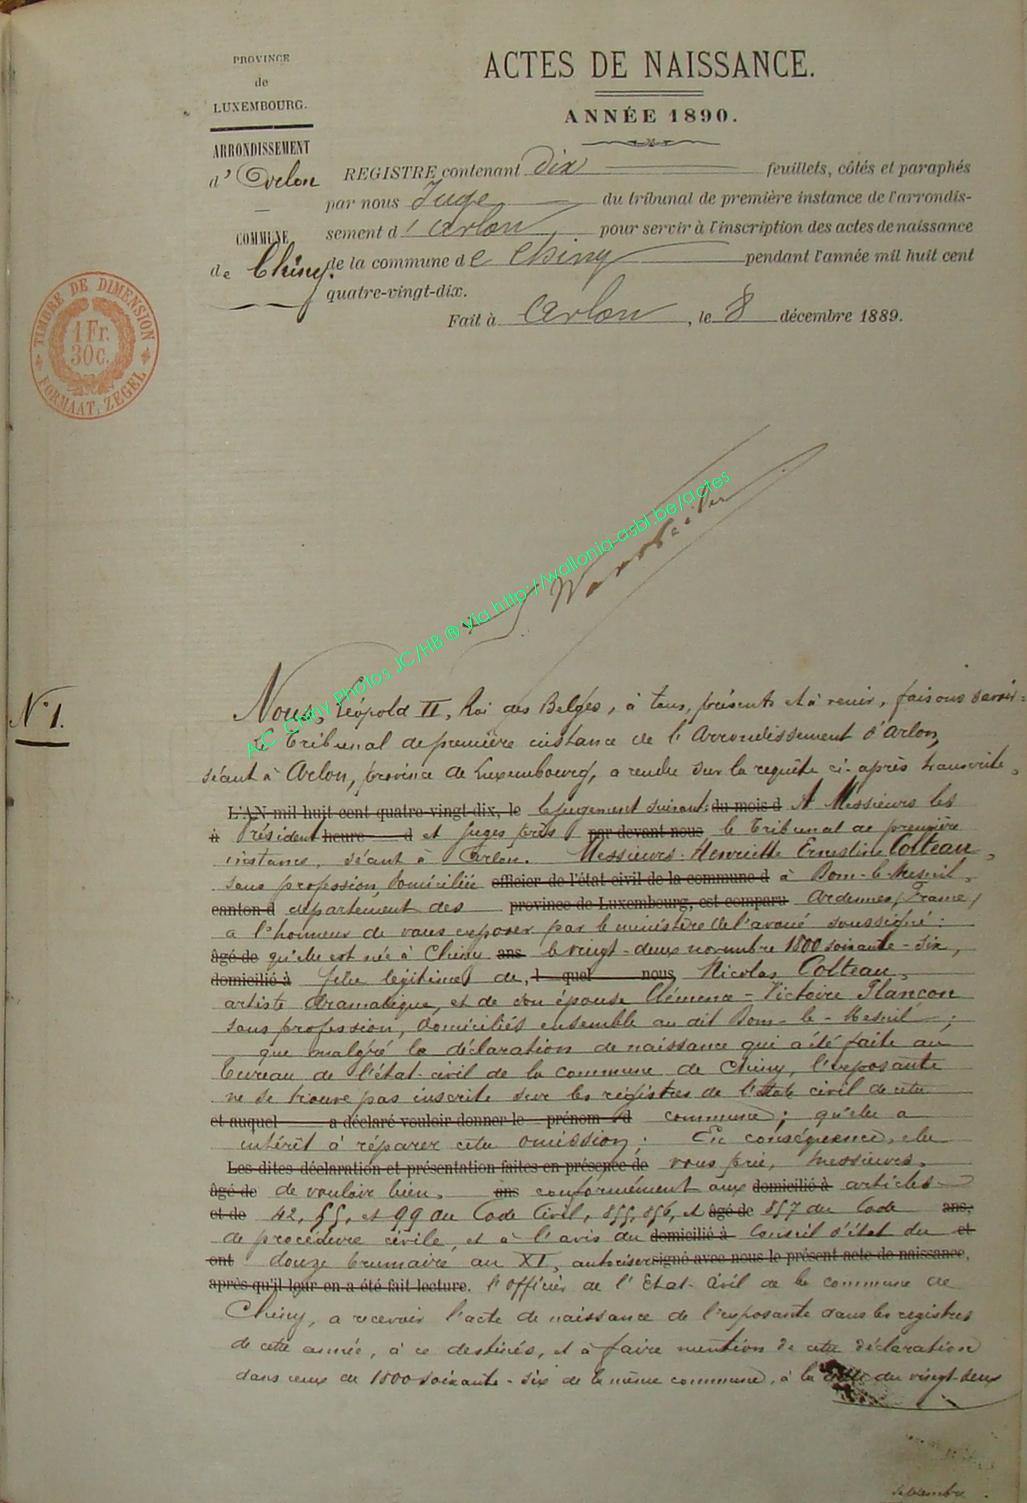 PROVINCE
de
LUXEMBOURG.
ARRONDISSEMENT
d' Arlon
COMMUNE
de Chiny.
ACTES DE NAISSANCE.
ANNÉE 1890.
REGISTRE contenant dix feuillets, côtés et paraphés
par nous Juge du tribunal de première instance de l'arrondis-
sement d'Arlon pour servir à l'inscription des actes de naissance
de la commune de Chiny pendant l'année mil huit cent
quatre-vingt-dix.
Fait à Arlon, le 8 décembre 1889.
TIMBRE DE DIMENSION
1 Fr.
30 c.
FORMAAT. ZEGEL
AC Chiny Photos JC/HB ® via http://wallonia-asbl.be/actes
N° 1.
Nous, Léopold II, Roi des Belges, à tous, présents et à venir, faisons savoir:
Le Tribunal de première instance de l'Arrondissement d'Arlon,
séant à Arlon, province de Luxembourg, a rendu sur la requête ci-après transcrite,
L'AN mil huit cent quatre-vingt-dix, le le jugement suivant: du mois d A Messieurs les
à Président heure d et Juges près par devant nous le Tribunal de première
instance, séant à Arlon. Messieurs: Henriette Ernestine Colteau,
sans profession, domiciliée officier de l'état civil de la commune d à Bom-le-Mesnil,
canton d département des province de Luxembourg, est comparu Ardennes (France)
a l'honneur de vous exposer par le ministère de l'avoué soussigné:
âgé de qu'elle est née à Chiny ans le vingt-deux novembre 1800 soixante-six,
domicilié à fille légitime de, l quel nous Nicolas Colteau,
artiste dramatique, et de son épouse Clémence-Victoire Plançon
sans profession, domiciliés ensemble au dit Bom-le-Mesnil;
que malgré la déclaration de naissance qui a été faite au
bureau de l'état-civil de la commune de Chiny, l'exposante
ne se trouve pas inscrite sur les régistres de l'état civil de cette
et auquel a déclaré vouloir donner le prénom d commune; qu'elle a
intérêt à réparer cette omission; En conséquence, elle
Les dites déclaration et présentation faites en présence de vous prie, Messieurs,
âgé de de vouloir bien, ans conformément aux domicilié à articles
et de 42, 55, et 99 du Code Civil, 855, 856, et âgé de 857 du Code ans,
de procédure civile, et à l'avis du domicilié à Conseil d'état du et
ont douze brumaire an XI, autoriser signé avec nous le présent acte de naissance,
après qu'il leur en a été fait lecture. l'Officier de l'Etat-Civil de la commune de
Chiny, à recevoir l'acte de naissance de l'exposante dans les registres
de cette année, à ce destinés, et à faire mention de cette déclaration
dans ceux de 1800 soixante-six de la même commune, à la du vingt-deux